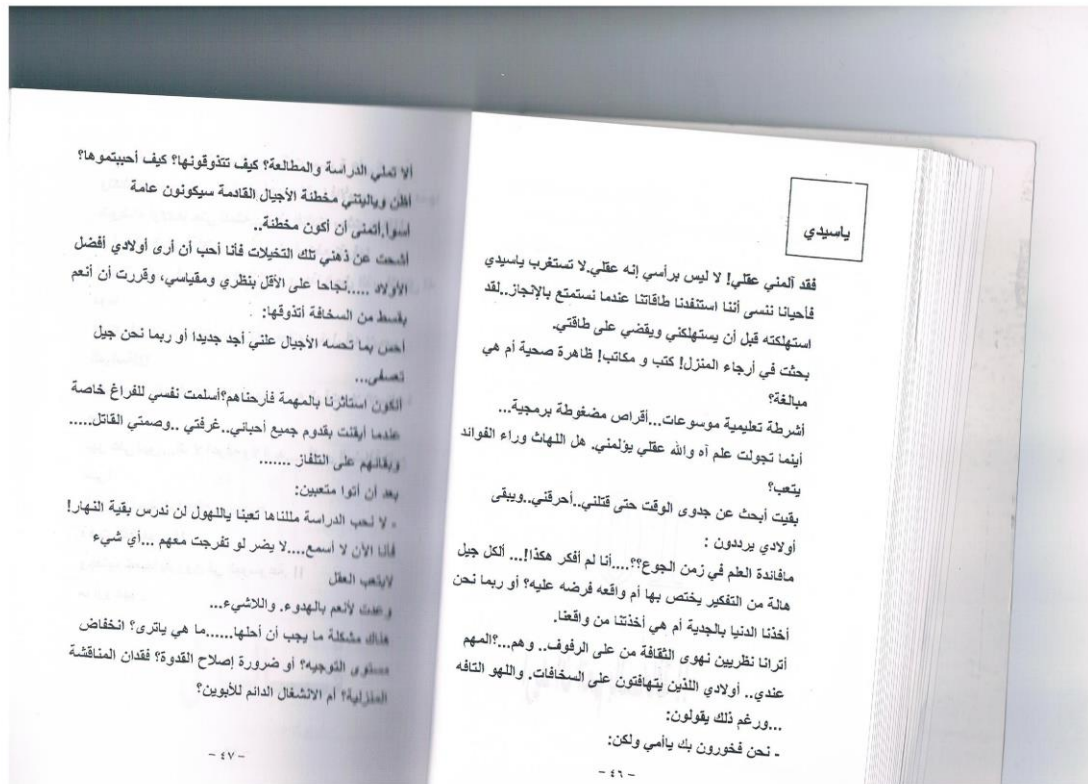 ياسيدي
فقد آلمني عقلي! لا ليس برأسي إنه عقلي.لا تستغرب ياسيدي
فأحيانا ننسى أننا استنفدنا طاقاتنا عندما نستمتع بالإنجاز..لقد
استهلكته قبل أن يستهلكني ويقضي على طاقتي.
بحثت في أرجاء المنزل! كتب و مكاتب! ظاهرة صحية أم هي
مبالغة؟
أشرطة تعليمية موسوعات...أقراص مضغوطة برمجية...
أينما تجولت علم آه والله عقلي يؤلمني. هل اللهاث وراء الفوائد
يتعب؟
بقيت أبحث عن جدوى الوقت حتى قتلني..أحرقني..ويبقى
أولادي يرددون :
مافائدة العلم في زمن الجوع؟؟....أنا لم أفكر هكذا!... ألكل جيل
هالة من التفكير يختص بها أم واقعه فرضه عليه؟ أو ربما نحن
أخذنا الدنيا بالجدية أم هي أخذتنا من واقعنا.
أترانا نظريين نهوى الثقافة من على الرفوف.. وهم...؟المهم
عندي.. أولادي اللذين يتهافتون على السخافات. واللهو التافه
...ورغم ذلك يقولون:
- نحن فخورون بك ياأمي ولكن:
- ٤٦ -
ألا تملي الدراسة والمطالعة؟ كيف تتذوقونها؟ كيف أحببتموها؟
أظن وياليتني مخطئة الأجيال القادمة سيكونون عامة
أسوأ.أتمنى أن أكون مخطئة..
أشحت عن ذهني تلك التخيلات فأنا أحب أن أرى أولادي أفضل
الأولاد .....نجاحا على الأقل بنظري ومقياسي، وقررت أن أنعم
بقسط من السخافة أتذوقها:
أحس بما تحسه الأجيال علني أجد جديدا أو ربما نحن جيل
تصفى...
أنكون استأثرنا بالمهمة فأرحناهم؟أسلمت نفسي للفراغ خاصة
عندما أيقنت بقدوم جميع أحبائي..غرفتي ..وصمتي القاتل.....
وبقائهم على التلفاز .......
بعد أن أتوا متعبين:
- لا نحب الدراسة مللناها تعبنا ياللهول لن ندرس بقية النهار!
فأنا الآن لا أسمع....لا يضر لو تفرجت معهم ...أي شيء
لايتعب العقل
وعدت لأنعم بالهدوء. واللاشيء...
هناك مشكلة ما يجب أن أحلها......ما هي ياترى؟ انخفاض
مستوى التوجيه؟ أو ضرورة إصلاح القدوة؟ فقدان المناقشة
المنزلية؟ أم الانشغال الدائم للأبوين؟
- ٤٧ -